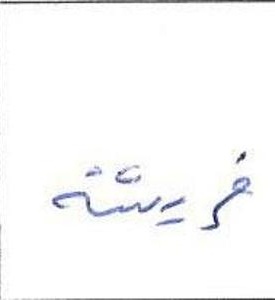 فريشة